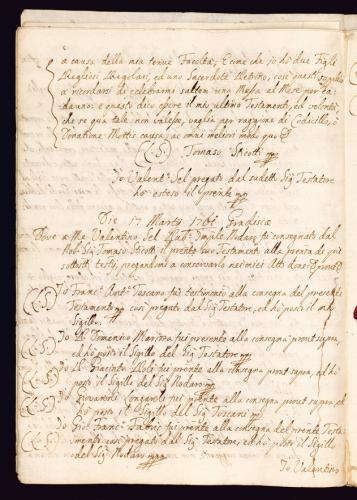 a causa della mia tenue Facoltà. E come che io hò due Figli
Religiosi Regolari, ed uno Sacerdote Retrino, così questi
a ricordarsi di celebrarmi saltem una Messa al Mese per ca,
dauno: e questo dico essere il mio ultimo Testamento, ed volontà
che se quà tale non valesse, vaglia per raggione di Codicillo, ò
Donatione Mortis causa, ac omni meliori modo
(L:S) Tomaso Sticotti mpp
Io Valent:º Sel pregato dal sudetto Sig: Testatore
hò esteso il pnte mpp
Die 17 Marty 1761 Gradiscæ
Dove a Me Valentino Sel fù consegnato dal
Nob: Sig: Tomaso Sticotti il pnte suo Testamento alla pnza de più
sottosti testi, pregandomi a conservarlo nei miei Atti
(L:S) Io Franc:º Ant:º Toscano fui testimonio alla consegna del presente
Testamento così pregato dal Sig: Testatore, ed hò posto il mio
Sigillo
(L:S) Io Domenico fui presente alla consegna prout supra,
ed hò posto il Sigillo del Sig: Testatore mpp
(L:S) Io Giacinto fui pnte alla consegna prout supra, ed hò
posto il Sigillo del Sig: Nodaro mpp
(L:S) Io fui pnte alla consegna prout supra, ed
hò posto il Sigillo del Sig: Toscani mpp
(L:S) Io Gio: Franc:º Fabris fui pnte alla consegna del pnte Testa
mento così pregato dal Sig: Testatore, ed hò posto il Sigillo
del Sig: Nodaro mpp
Io Valentino